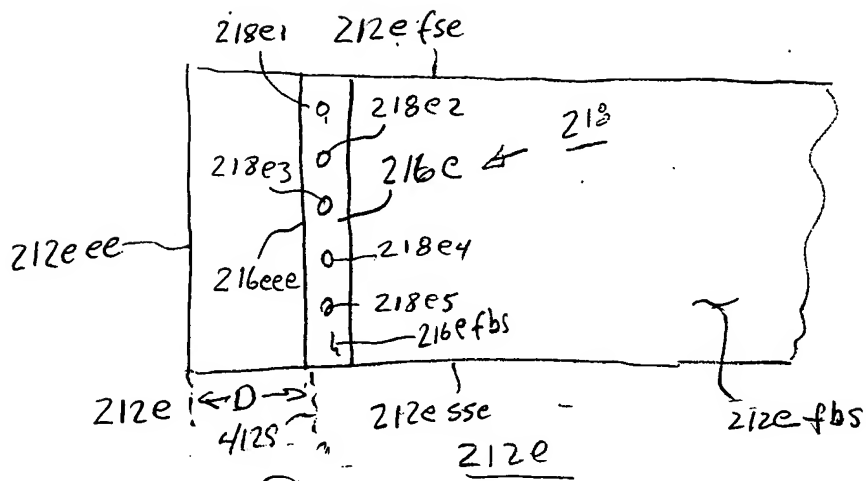 218e1
212e fse
218e2
218
218e3
216e
212e ee
216eee
218e4
218e5
216efbs
212e
D
412s
212e sse
212e fbs
212e